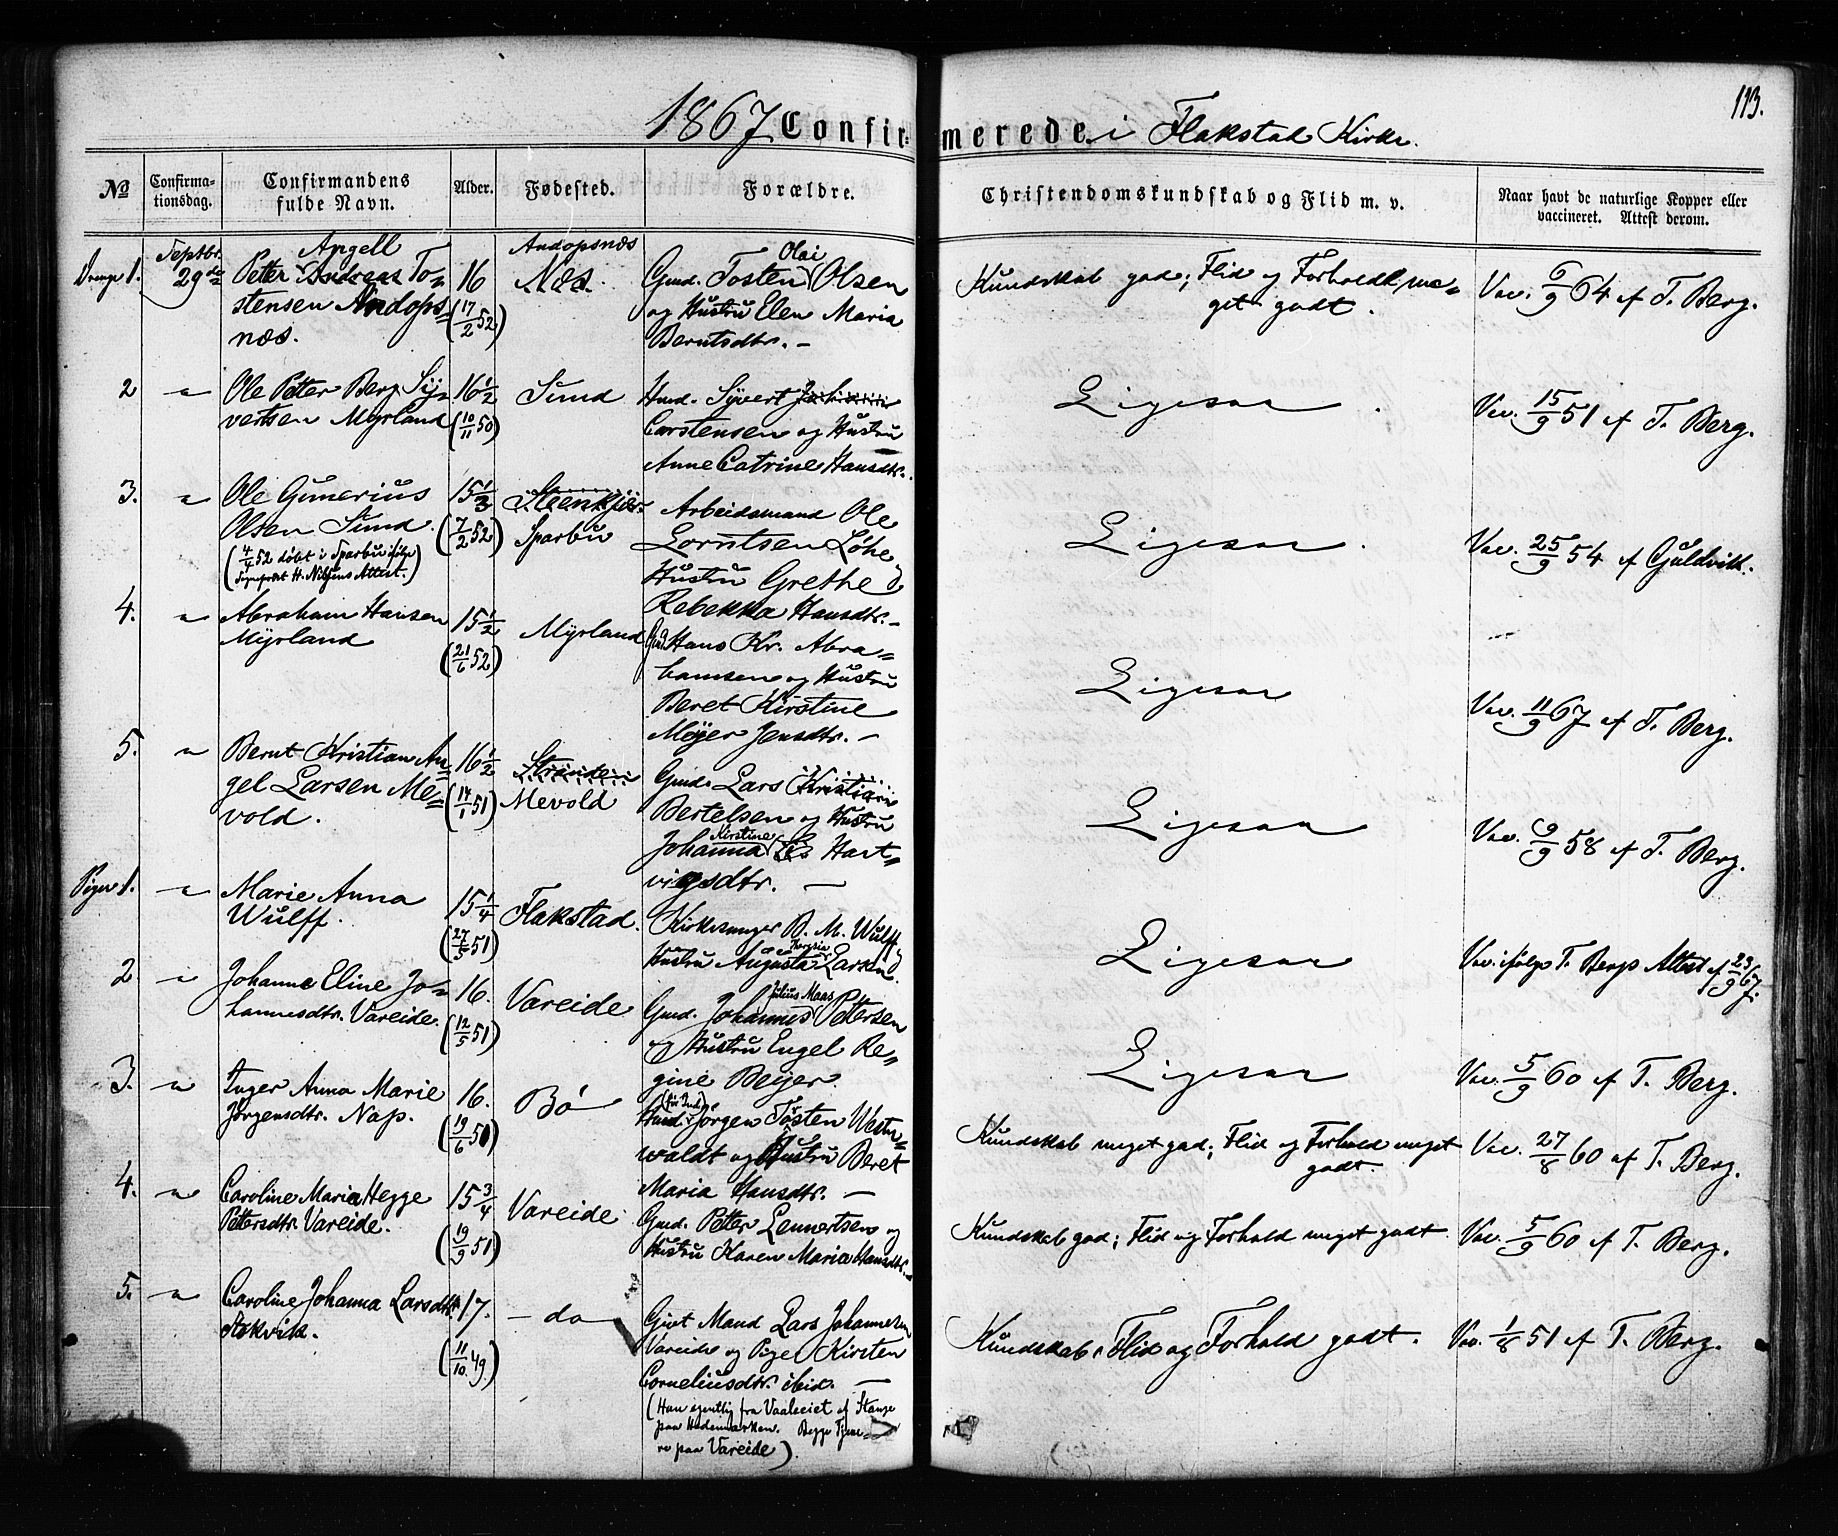 113.
1867 Confirmerede i Flakstad Kirke.
No
Confirmationsdag.
Confirmandens fulde Navn.
Alder.
Fødested.
Forældre.
Christendomskundskab og Flid m. v.
Naar havt de naturlige Kopper eller vaccineret. Attest derom.
Drenge 1.
Septbr. 29de
Angell
Petter Andreas To=
stensen Andops=
næs.
16
(17/2 52)
Andopsnæs
Næs.
Olai
Gmd. Tosten Olsen
og Hustru Elen Maria
Berntsdtr. –
Kundskab god; Flid og Forhold me=
get godt.
Vac. 6/9 64 af T. Berg.
2
"
Ole Petter Berg Sy=
vertsen Myrland
16 1/2
(10/11 50)
Sund
Hmd. Syvert
Carstensen og Hustru
Anne Catrine Hansdtr.
Ligesaa.
Vac. 15/9 51 af T. Berg.
3.
"
Ole Gunerius
Olsen Sund.
(4/4 52 døbt i Sparbu ifølge
Sognepræst H. Nilsens Attest.)
15 1/3
(7/2 52)
Steenkjær
Sparbu
Arbeidsmand Ole
Lorntsen Løhe
Hustru Grethe
Rebekka Hansdtr. –
Ligesaa.
Vac. 25/9 54 af Guldvik.
4.
"
Abraham Hansen
Myrland
15 1/2
(21/6 52)
Myrland
Gmd. Hans Kr. Abra=
hamsen og Hustru
Beret Kirstine
Møyer Jensdtr. –
Ligesaa
Vac. 11/9 67 af T. Berg.
5.
"
Bernt Kristian An=
gel Larsen Me=
vold.
16 1/2
(14/1 51)
Strande
Mevold
Gmd. Lars Kristian
Bertelsen og Hustru
Kirstine
Johanna Hart=
vigsdtr. –
Ligesaa
Vac. 9/9 58 af T. Berg.
Piger 1.
"
Marie Anna
Wulff.
15 1/4
(27/5 51)
Flakstad.
Kirkesanger B. M. Wulff
Theresia
Hustru Augusta Larsen.
Ligesaa
Vac. ifølge T. Bergs Attest af 23/9 67.
2
"
Johanne Eline Jo=
hannesdtr. Vareide.
16.
(12/5 51)
Vareide
Julius Maas
Gmd. Johannes Pettersen
og Hustru Engel Re=
gine Beyer
Ligesaa
Vac. 5/9 60 af T. Berg.
3.
"
Inger Anna Marie
Jørgensdtr. Nap.
16.
(19/6 50)
Bø
(før Ind)
Hmd. Jørgen Tosten West=
waldt og Hustru Beret
Maria Hansdtr. –
Kundskab meget god; Flid og Forhold meget
godt.
Vac. 27/8 60 af T. Berg.
4.
"
Caroline Maria Hegge
Pettersdtr. Vareide.
15 3/4
(19/9 51)
Vareide
Gmd. Petter Lennertsen og
Hustru Karen Maria Hansdtr.
Kundskab god; Flid og Forhold meget godt.
Vac. 5/9 60 af T. Berg.
5.
"
Caroline Johanna Larsdtr.
Stokvik.
17.
(11/10 49)
– do –
Givt Mand Lars Johannesen
Vareide og Pige Kirsten
Corneliusdtr. ibid. –
(Han egentlig fra Vaaleeiet af Stange
paa Hedemarken. Begge Tjene=
re paa Vareide)
Kundskab, Flid og Forhold godt.
Vac. 1/8 51 af T. Berg.